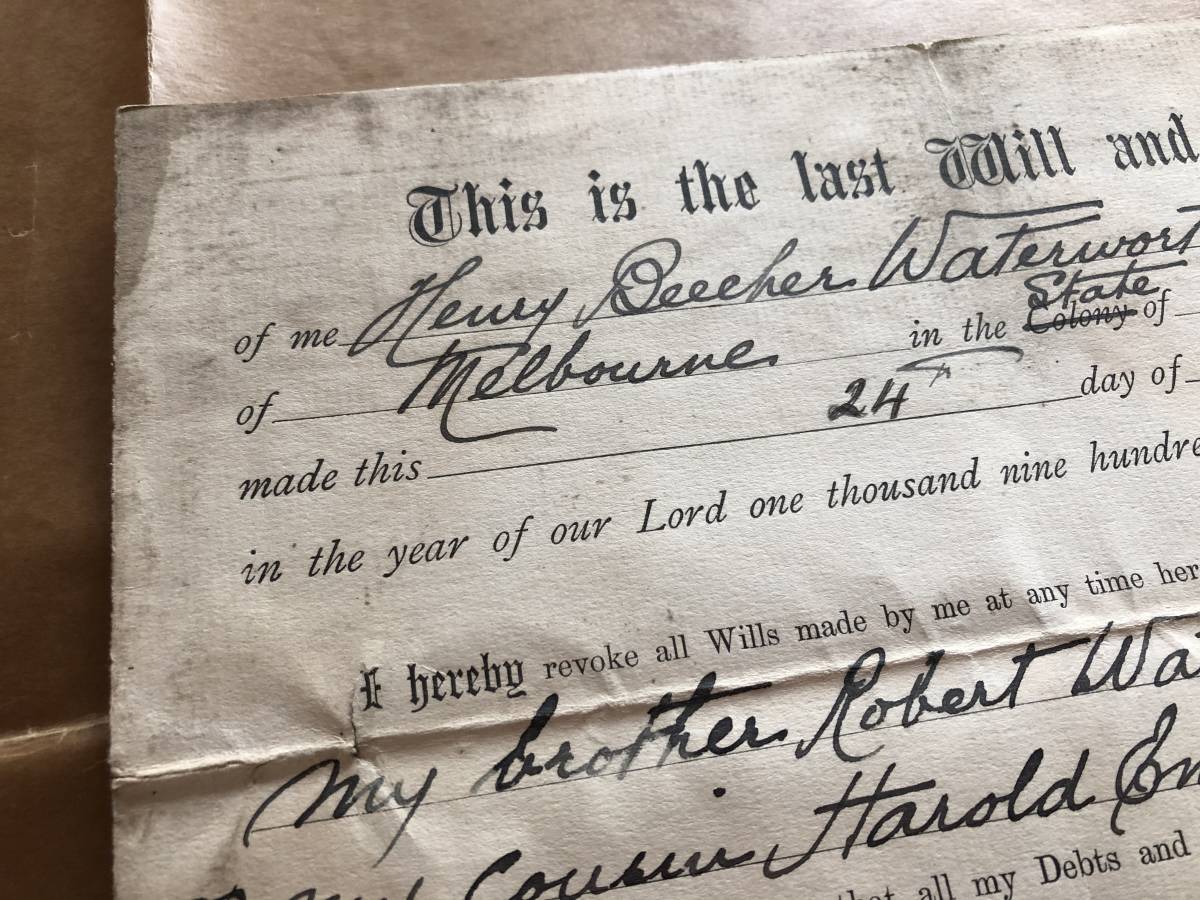 This is the last Will and
of me Henry Beecher Waterwort
of Melbourne in the Colony State of
made this 24th day of
in the year of our Lord one thousand nine hundre
I hereby revoke all Wills made by me at any time her
my brother Robert Wa
my Cousin Harold Em
that all my Debts and